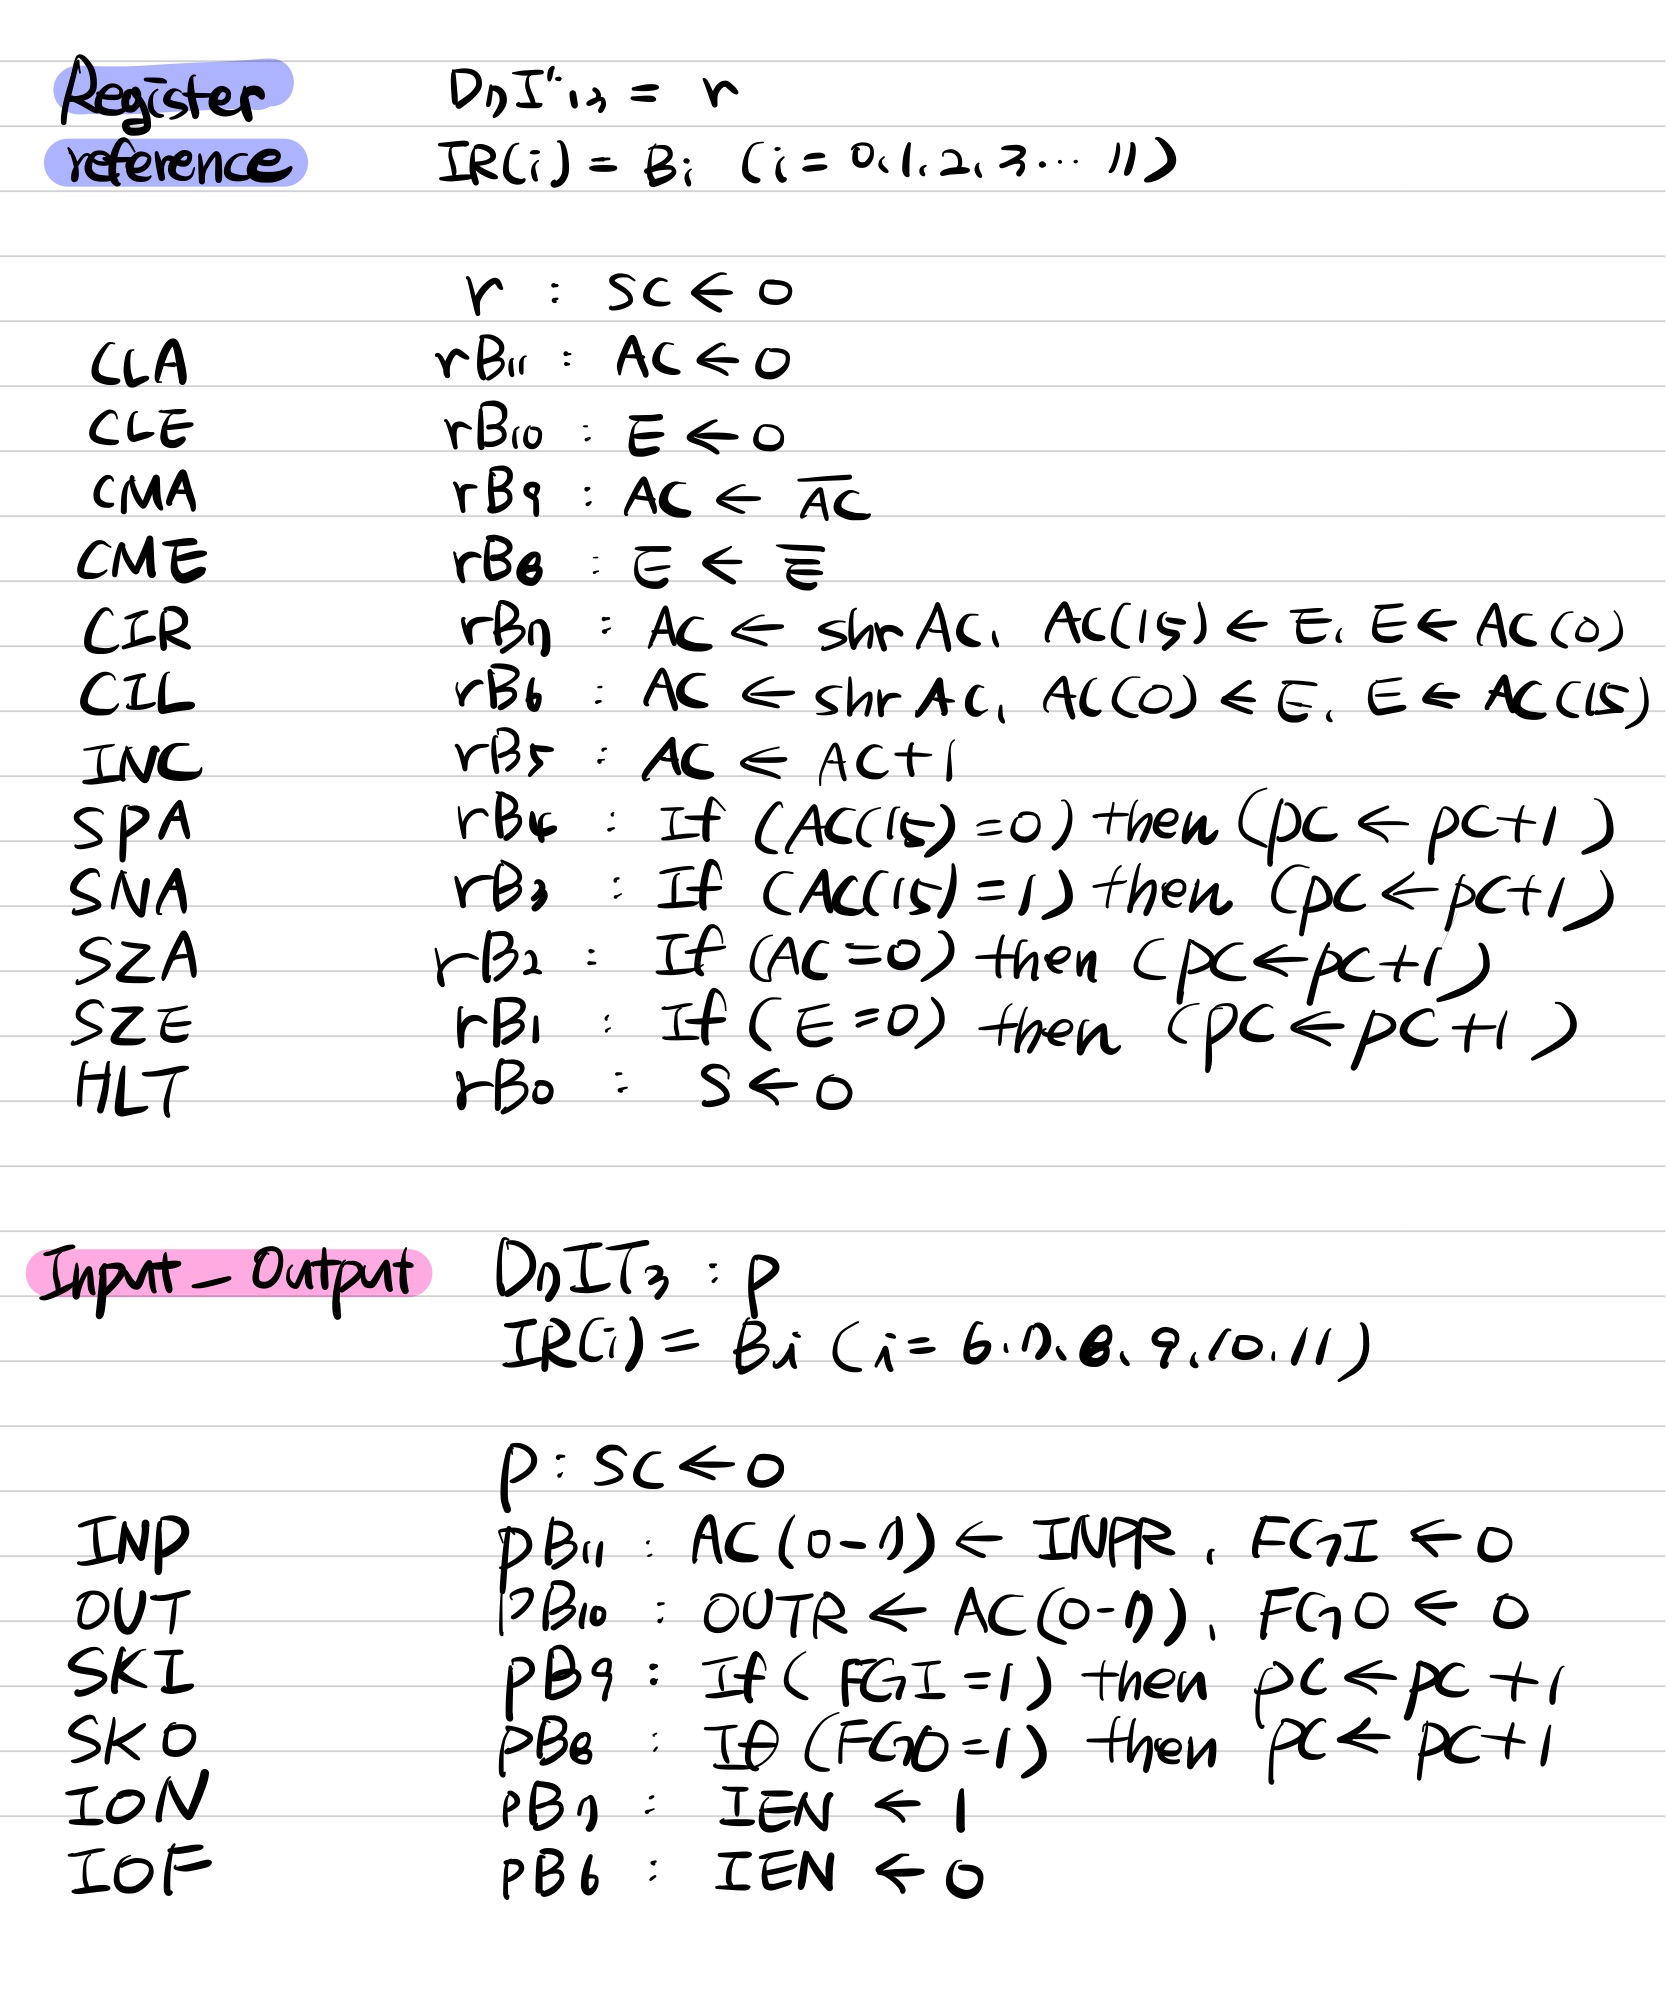 Register D₇I'T₃ = r
reference IR(i) = Bᵢ (i = 0, 1, 2, 3 ··· 11)
r : SC ← 0
CLA rB₁₁ : AC ← 0
CLE rB₁₀ : E ← 0
CMA rB₉ : AC ← A̅C̅
CME rB₈ : E ← E̅
CIR rB₇ : AC ← shr AC, AC(15) ← E, E ← AC(0)
CIL rB₆ : AC ← shr AC, AC(0) ← E, E ← AC(15)
INC rB₅ : AC ← AC+1
SPA rB₄ : If (AC(15) = 0) then (PC ← PC+1)
SNA rB₃ : If (AC(15) = 1) then (PC ← PC+1)
SZA rB₂ : If (AC = 0) then (PC ← PC+1)
SZE rB₁ : If (E = 0) then (PC ← PC+1)
HLT rB₀ : S ← 0
Input - Output D₇IT₃ : p
IR(i) = Bi (i = 6, 7, 8, 9, 10, 11)
p : SC ← 0
INP pB₁₁ : AC(0-7) ← INPR, FGI ← 0
OUT pB₁₀ : OUTR ← AC(0-7), FGO ← 0
SKI pB₉ : If (FGI = 1) then PC ← PC + 1
SKO pB₈ : If (FGO = 1) then PC ← PC + 1
ION pB₇ : IEN ← 1
IOF pB₆ : IEN ← 0